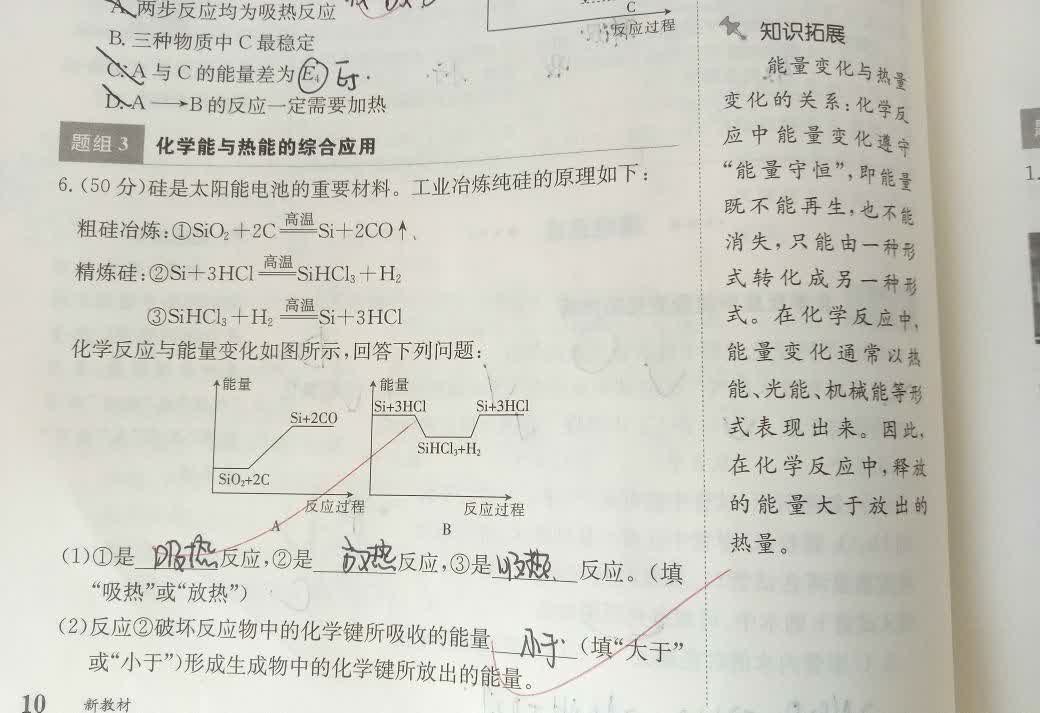 A. 两步反应均为吸热反应
B. 三种物质中C最稳定
C. A与C的能量差为E₄ E₃.
D. A⟶B的反应一定需要加热
C
反应过程
题组3 化学能与热能的综合应用
6.(50分)硅是太阳能电池的重要材料。工业冶炼纯硅的原理如下:
粗硅冶炼:①SiO₂+2C 高温 Si+2CO↑、
精炼硅:②Si+3HCl 高温 SiHCl₃+H₂
③SiHCl₃+H₂ 高温 Si+3HCl
化学反应与能量变化如图所示,回答下列问题:
能量
Si+2CO
SiO₂+2C
反应过程
A
能量
Si+3HCl
Si+3HCl
SiHCl₃+H₂
反应过程
B
(1)①是 吸热 反应,②是 放热 反应,③是 吸热 反应。(填
“吸热”或“放热”)
(2)反应②破坏反应物中的化学键所吸收的能量 小于 (填“大于”
或“小于”)形成生成物中的化学键所放出的能量。
10 新教材
知识拓展
能量变化与热量
变化的关系:化学反
应中能量变化遵守
“能量守恒”,即能量
既不能再生,也不能
消失,只能由一种形
式转化成另一种形
式。在化学反应中,
能量变化通常以热
能、光能、机械能等形
式表现出来。因此,
在化学反应中,释放
的能量大于放出的
热量。
1.